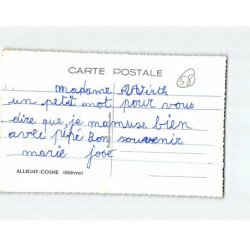 CARTE POSTALE
58
madame
un petit mot pour vous
dire que je mamuse bien
avec pépé Bon souvenir
marie josé
ALLIGNY-COSNE (Nièvre)